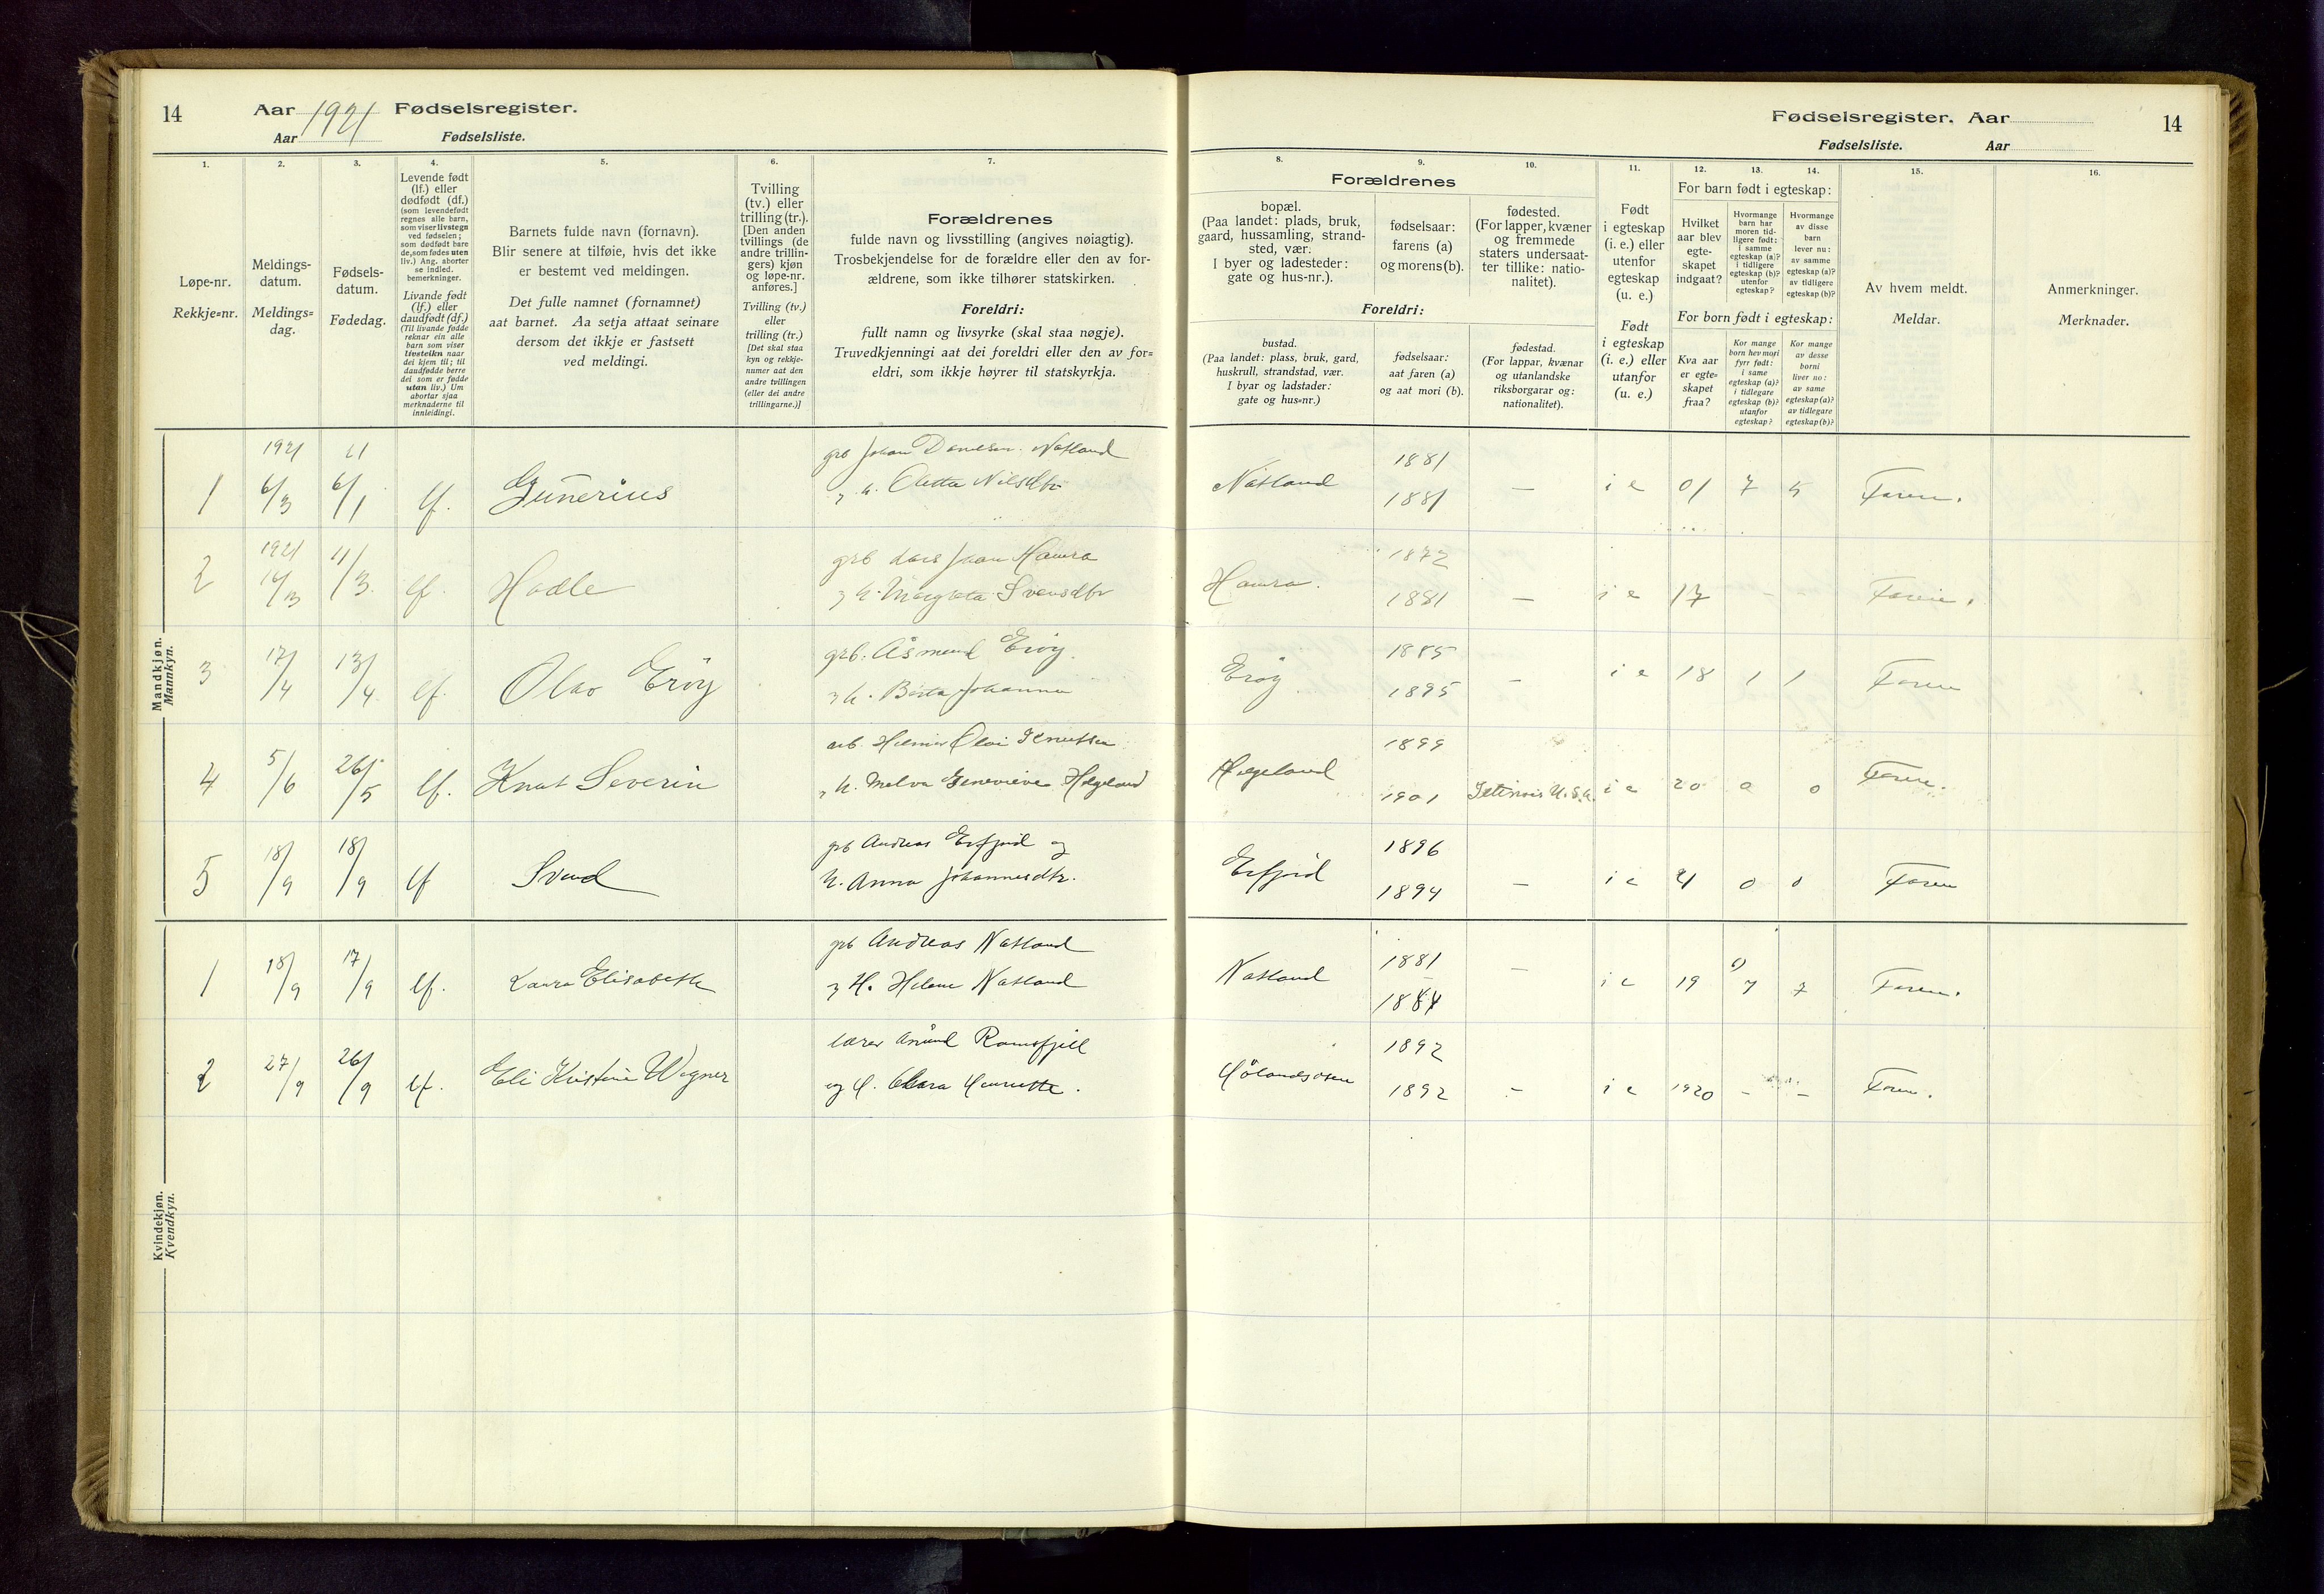 14
Aar 1921 Fødselsregister.
Aar Fødselsliste.
1.
Løpe-nr.
Rekkje=nr.
2.
Meldings-
datum.
Meldings=
dag.
3.
Fødsels-
datum.
Fødedag.
4.
Levende født
(lf.) eller
dødfødt (df.)
(som levendefødt
regnes alle barn,
som viser livstegn
ved fødselen;
som dødfødt bare
de, som fødes uten
liv.) Ang. aborter
se indled.
bemerkninger.
Livande født
(lf.) eller
daudfødt (df.)
(Til livande fødde
reknar ein alle
barn som viser
livsteikn naar
dei kjem til; til
daudfødde berre
dei som er fødde
utan liv.) Um
abortar sjaa
merknaderne til
innleidingi.
5.
Barnets fulde navn (fornavn).
Blir senere at tilføie, hvis det ikke
er bestemt ved meldingen.
Det fulle namnet (fornamnet)
aat barnet. Aa setja attaat seinare
dersom det ikkje er fastsett
ved meldingi.
6.
Tvilling
(tv.) eller
trilling (tr.).
[Den anden
tvillings (de
andre trillin-
gers) kjøn
og løpe-nr.
anføres.]
Tvilling (tv.)
eller
trilling (tr.)
[Det skal staa
kyn og rekkje-
numer aat den
andre tvillingen
(eller dei andre
trillingarne.)]
7.
Forældrenes
fulde navn og livsstilling (angives nøiagtig).
Trosbekjendelse for de forældre eller den av for-
ældrene, som ikke tilhører statskirken.
Foreldri:
fullt namn og livsyrke (skal staa nøgje).
Truvedkjenningi aat dei foreldri eller den av for=
eldri, som ikkje høyrer til statskyrkja.
Mandkjøn.
Mannkyn.
1 1921 6/3 21 6/1 lf. Gunerius
grb Johan Danielsen Natland
h. Oletta Nilsdtr
2 1921 14/3 11/3 lf. Hadle
grb Lars Johan Hamra
h. Margreta Svensdtr
3 17/4 13/4 lf. Olav Erøy
grb. Åsmund Erøy.
h. Berta Johanna
4 5/6 26/5 lf. Knut Severin
arb. Hilmer Olai Knutsen
h. Melva Genevieve Helgeland
5 18/9 18/9 lf Svend
grb Andreas Erfjord og
h. Anna Johannesdtr.
Kvindekjøn.
Kvendkyn.
1 18/9 17/9 lf. Laura Elisabeth
grb Andreas Natland
H. Helene Natland
2 27/9 26/9 lf. Eli Kristine Wegner
lærer Anund Ramsfjell
og H. Clara Henrette.
Fødselsregister. Aar
Fødselsliste. Aar
14
8.
9.
10.
Forældrenes
bopæl.
(Paa landet: plads, bruk,
gaard, hussamling, strand-
sted, vær.
I byer og ladesteder:
gate og hus-nr.).
fødselsaar:
farens (a)
og morens (b).
fødested.
(For lapper, kvæner
og fremmede
staters undersaat-
ter tillike: natio-
nalitet).
Foreldri:
bustad.
(Paa landet: plass, bruk, gard,
huskrull, strandstad, vær.
I byar og ladstader:
gate og hus=nr.)
fødselsaar:
aat faren (a)
og aat mori (b).
fødestad.
(For lappar, kvænar
og utanlandske
riksborgarar og:
nationalitet).
11.
Født
i egteskap
(i. e.) eller
utenfor
egteskap
(u. e.)
Født
i egteskap
(i. e.) eller
utanfor
(u. e.)
12.
13.
14.
For barn født i egteskap:
Hvilket
aar blev
egte-
skapet
indgaat?
Hvormange
barn har
moren tid-
ligere født:
i samme
egteskap (a)?
i tidligere
egteskap (b)?
utenfor
egteskap?
Hvormange
av disse
barn
lever nu:
av samme
egteskap (a)?
av tidligere
egteskap (b)?
For born født i egteskap:
Kva aar
er egte-
skapet
fraa?
Kor mange
born hev mori
fyrr født:
i same
egteskap (a)?
i tidlegare
egteskap (b)?
utanfor
egteskap?
Kor mange
av desse
borni
liver no:
av same
egteskap (a)?
av tidlegare
egteskap (b)?
15.
Av hvem meldt.
Meldar.
16.
Anmerkninger.
Merknader.
Natland 1881 1881 — i e 01 7 5 Faren.
Hamra. 1872 1881 — i e 17 Faren.
Erøy 1885 1895 — i e 18 1 1 Faren
Helgeland 1899 1901 Illinois U.S.A. i e 20 0 0 Faren.
Erfjord 1896 1894 — i e 21 0 0 Faren
Natland 1881 1884 — i e 19 7 7 Faren.
Hålandsosen 1892 1892 — i e 1920 – – Faren.